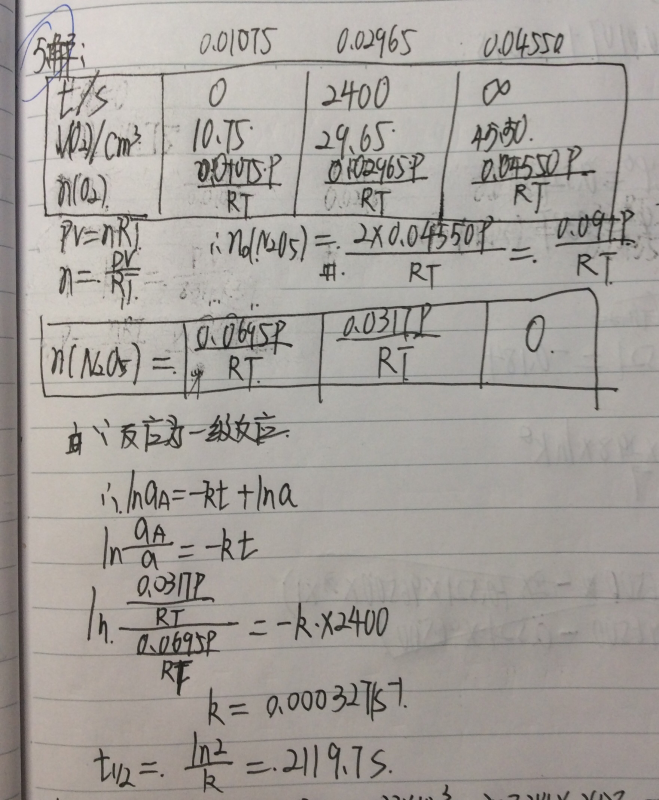 5.解: 0.01075 0.02965 0.04550
t/s 0 2400 ∞
V(O2)/cm³ 10.75 29.65 45.50
n(O2) 0.01075P/RT 0.02965P/RT 0.04550P/RT
PV=nRT ∴n0(N2O5)= 2×0.04550P/RT = 0.091P/RT
n= PV/RT
n(N2O5)= 0.0695P/RT 0.0317P/RT 0
∵反应为一级反应
∴lnaA=-kt+lna
ln aA/a = -kt
ln (0.0317P/RT)/(0.0695P/RT) = -k×2400
k= 0.000327s⁻¹
t1/2= ln2/k = 2119.7s